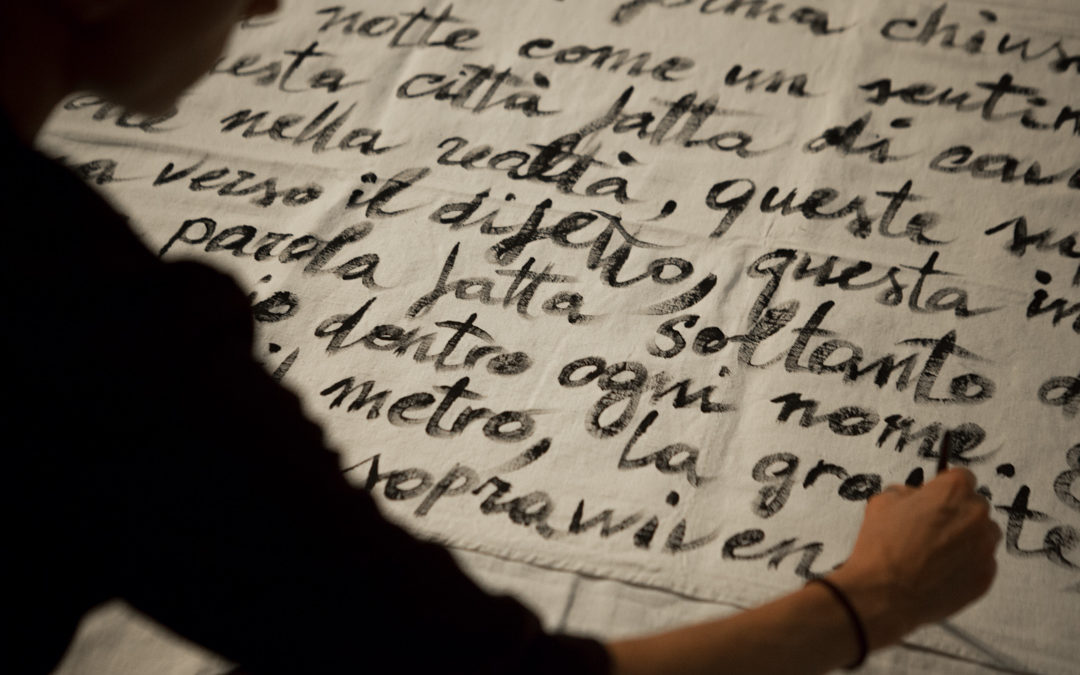 prima chius
notte come un sentim
esta città fatta di
che nella realtà, questa su
verso il difetto, questa in
parola fatta soltanto d
io dentro ogni nome. E
il metro, la gra ite
sopravviven